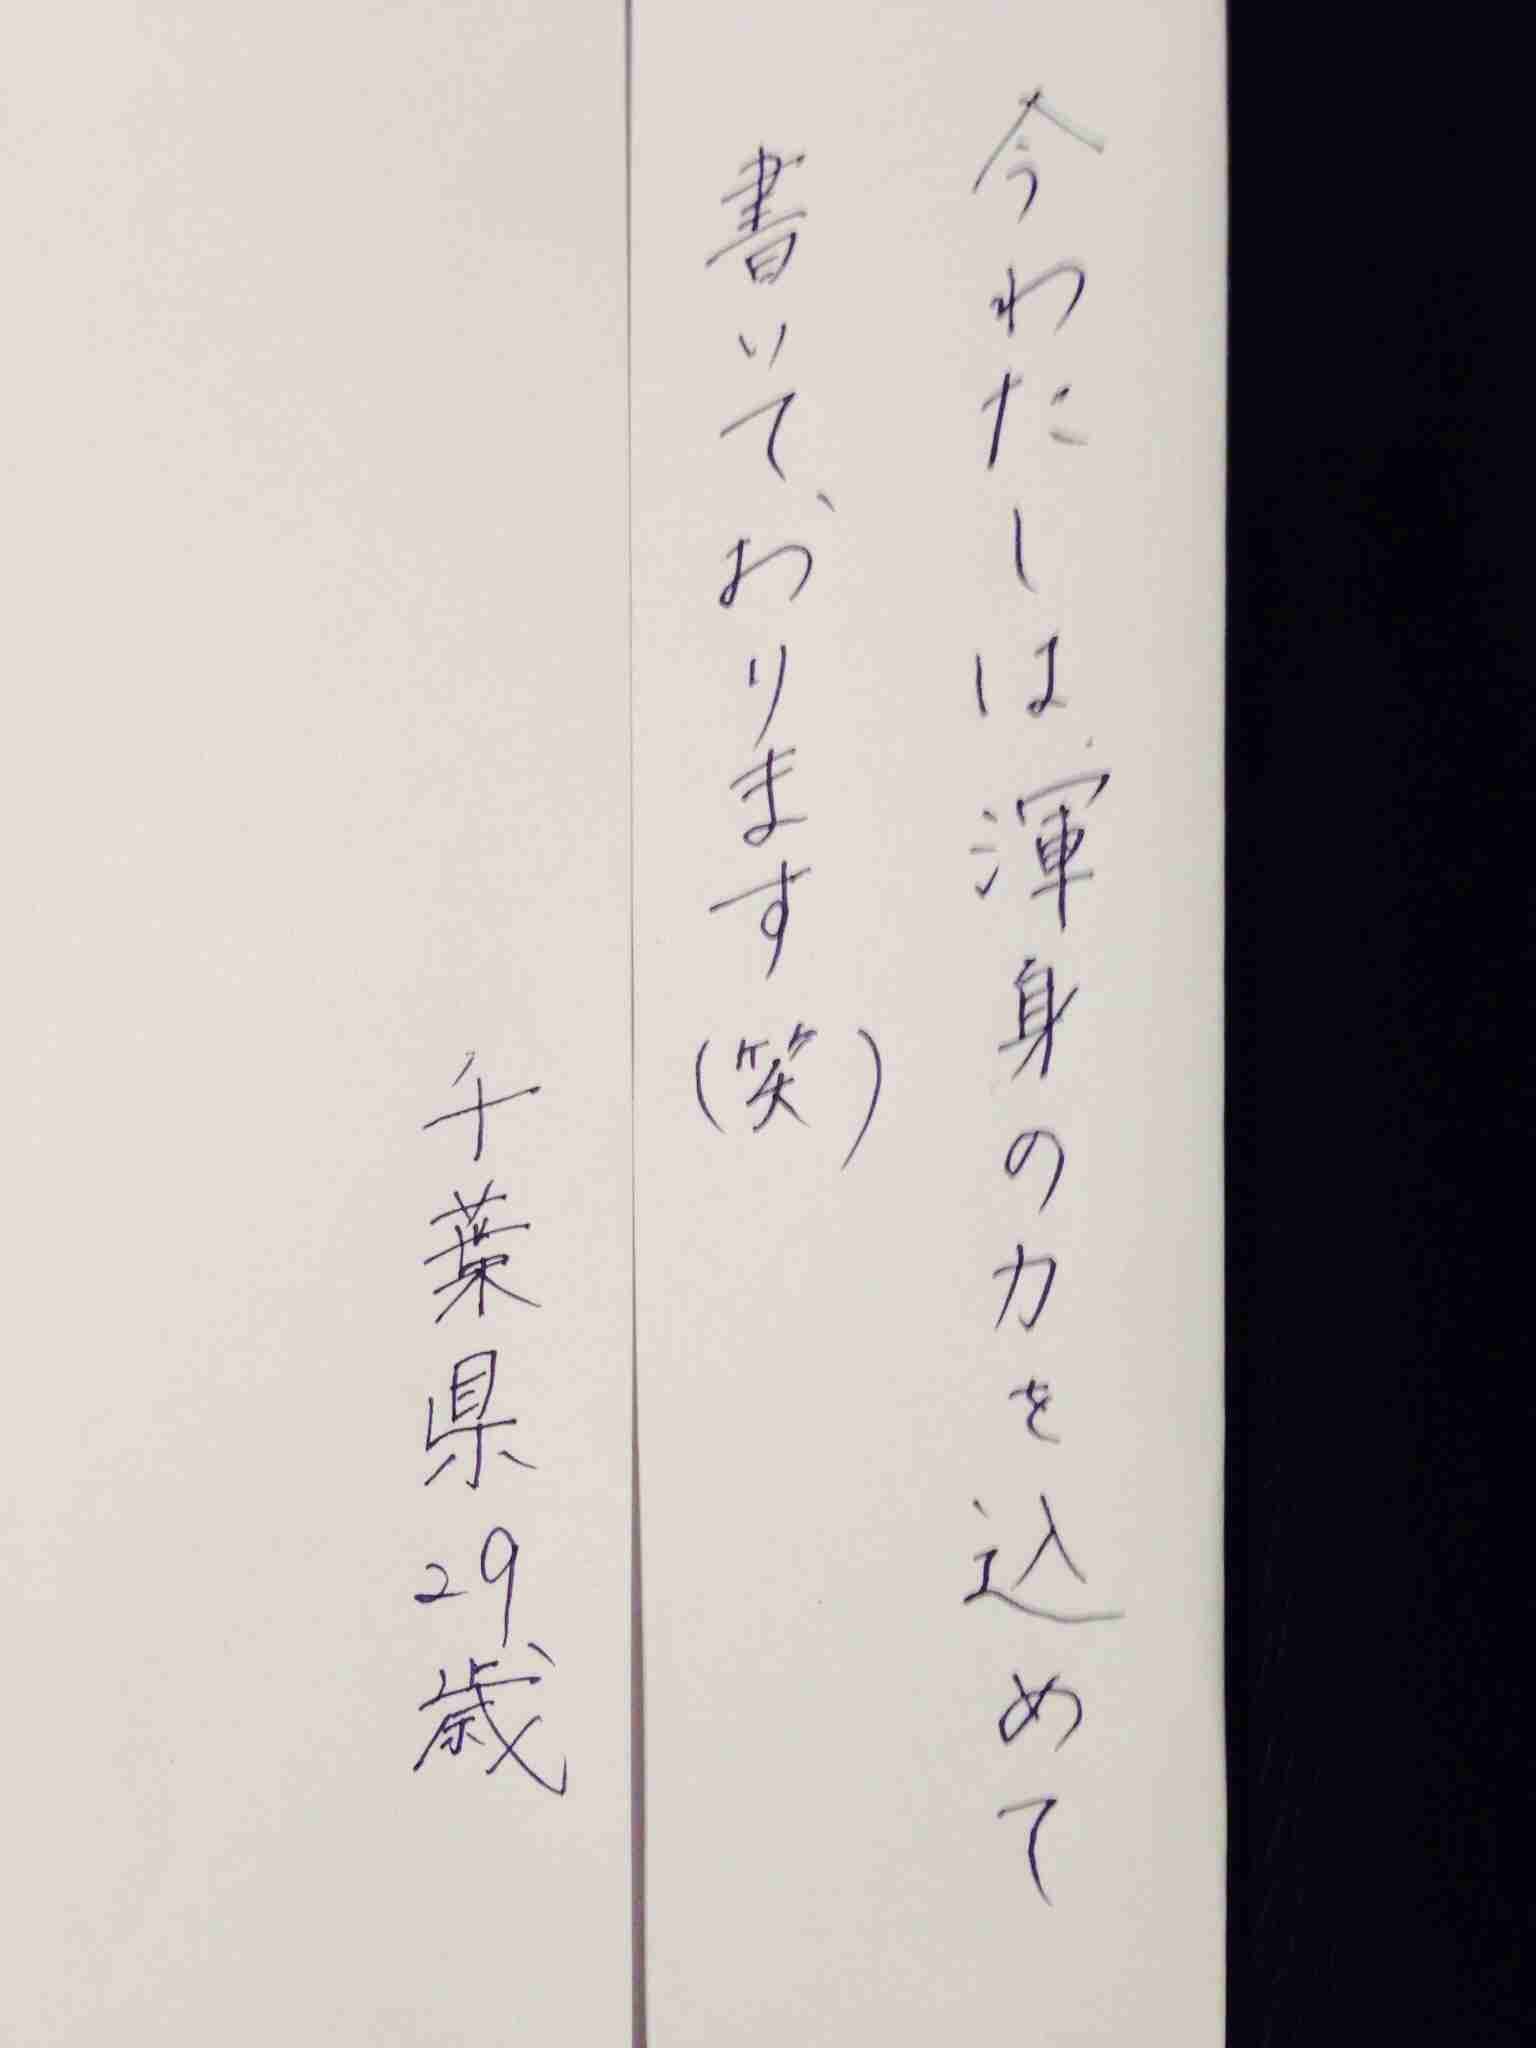 今わたしは渾身の力を込めて
書いております(笑)
千葉県29歳